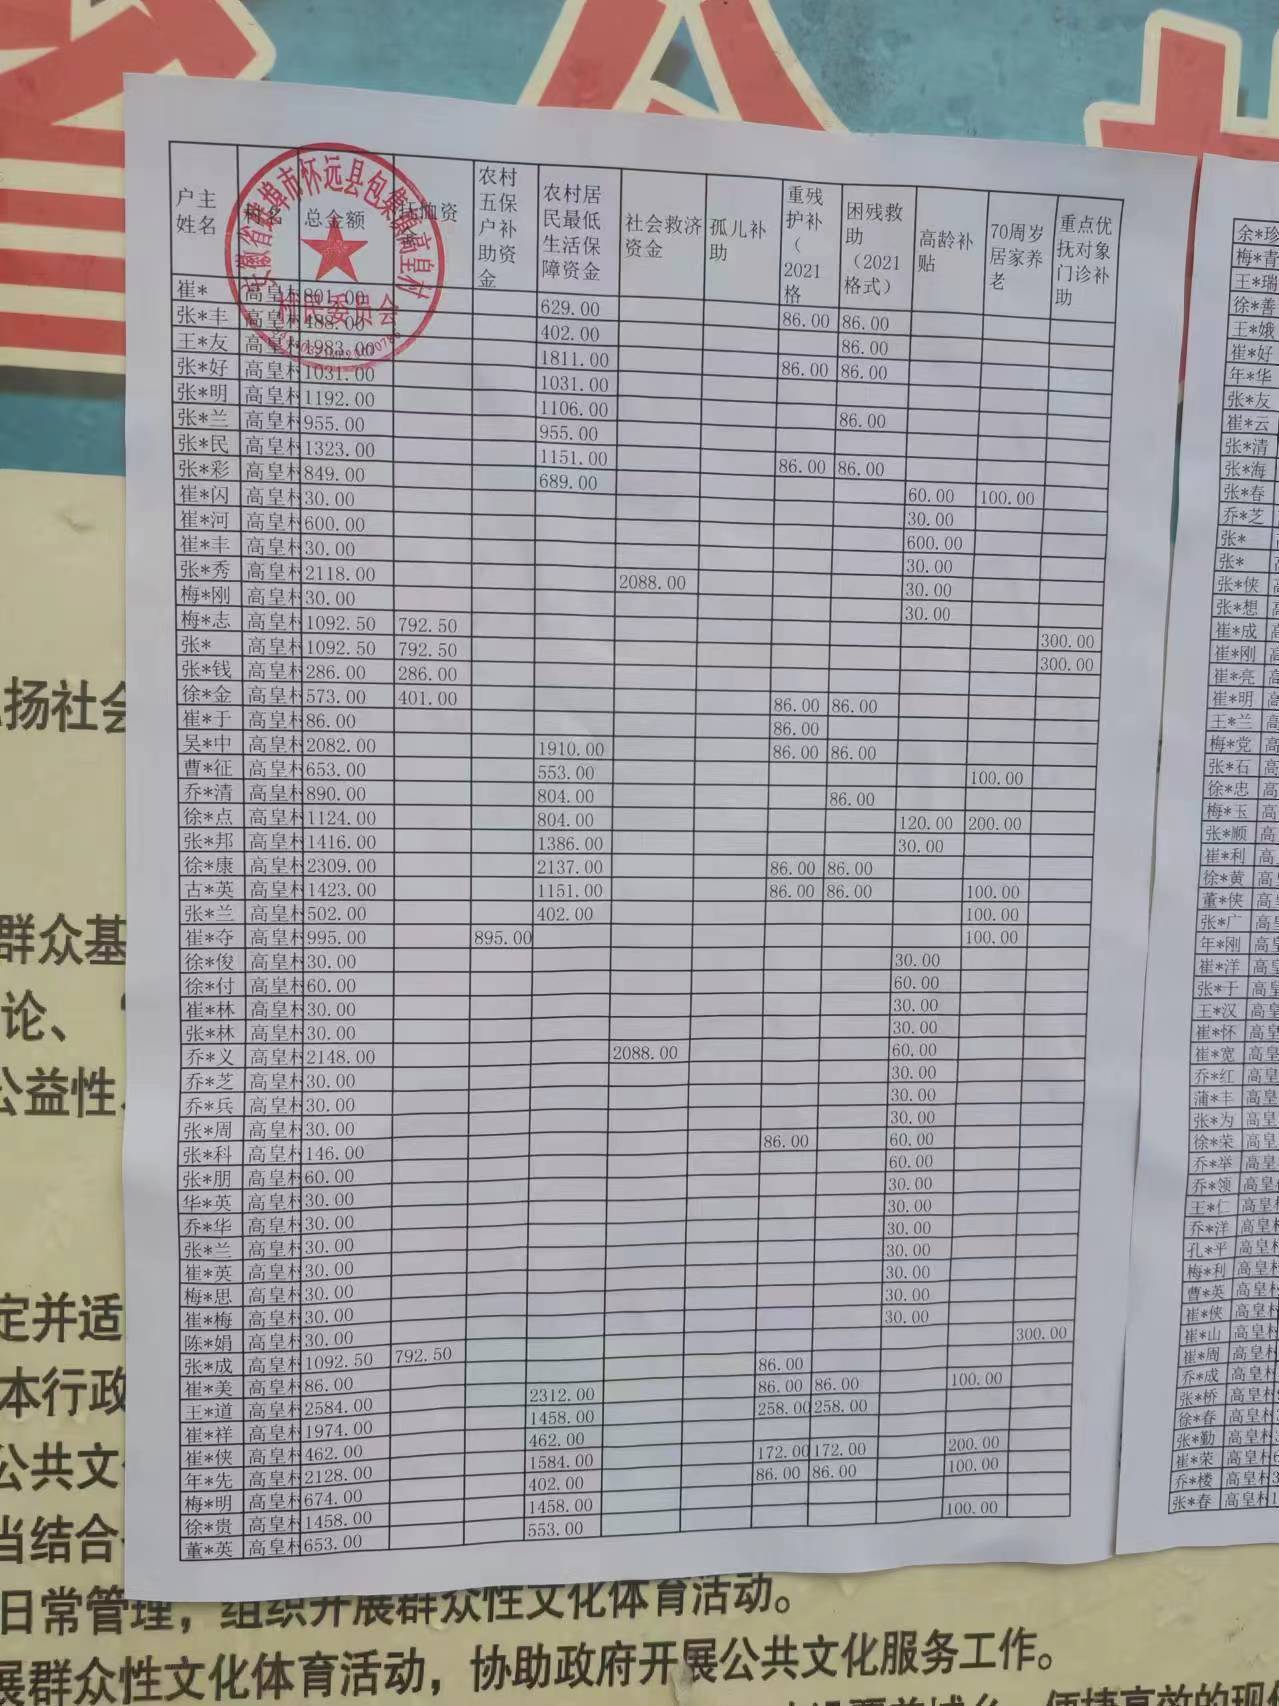 户主姓名 村名 总金额 抚恤资金 农村五保户补助资金 农村居民最低生活保障资金 社会救济资金 孤儿补助 重残护补（2021格 困残救助（2021格式） 高龄补贴 70周岁居家养老 重点优抚对象门诊补助
安徽省蚌埠市怀远县包集镇高皇村
村民委员会
崔* 高皇村 801.00 629.00 86.00 86.00
张*丰 高皇村 488.00 402.00 86.00
王*友 高皇村 1983.00 1811.00 86.00 86.00
张*好 高皇村 1031.00 1031.00
张*明 高皇村 1192.00 1106.00 86.00
张*兰 高皇村 955.00 955.00
张*民 高皇村 1323.00 1151.00 86.00 86.00
张*彩 高皇村 849.00 689.00 60.00 100.00
崔*闪 高皇村 30.00 30.00
崔*河 高皇村 600.00 600.00
崔*丰 高皇村 30.00 30.00
张*秀 高皇村 2118.00 2088.00 30.00
梅*刚 高皇村 30.00 30.00
梅*志 高皇村 1092.50 792.50 300.00
张* 高皇村 1092.50 792.50 300.00
张*钱 高皇村 286.00 286.00
徐*金 高皇村 573.00 401.00 86.00 86.00
崔*于 高皇村 86.00 86.00
吴*中 高皇村 2082.00 1910.00 86.00 86.00
曹*征 高皇村 653.00 553.00 100.00
乔*清 高皇村 890.00 804.00 86.00
徐*点 高皇村 1124.00 804.00 120.00 200.00
张*邦 高皇村 1416.00 1386.00 30.00
徐*康 高皇村 2309.00 2137.00 86.00 86.00
古*英 高皇村 1423.00 1151.00 86.00 86.00 100.00
张*兰 高皇村 502.00 402.00 100.00
崔*夺 高皇村 995.00 895.00 100.00
徐*俊 高皇村 30.00 30.00
徐*付 高皇村 60.00 60.00
崔*林 高皇村 30.00 30.00
张*林 高皇村 30.00 30.00
乔*义 高皇村 2148.00 2088.00 60.00
乔*芝 高皇村 30.00 30.00
乔*兵 高皇村 30.00 30.00
张*周 高皇村 30.00 30.00
张*科 高皇村 146.00 86.00 60.00
张*朋 高皇村 60.00 60.00
华*英 高皇村 30.00 30.00
乔*华 高皇村 30.00 30.00
张*兰 高皇村 30.00 30.00
崔*英 高皇村 30.00 30.00
梅*思 高皇村 30.00 30.00
崔*梅 高皇村 30.00 30.00
陈*娟 高皇村 30.00 30.00
张*成 高皇村 1092.50 792.50 300.00
崔*美 高皇村 86.00 86.00
王*道 高皇村 2584.00 2312.00 86.00 86.00 100.00
崔*祥 高皇村 1974.00 1458.00 258.00 258.00
崔*侠 高皇村 462.00 462.00
年*先 高皇村 2128.00 1584.00 172.00 172.00 200.00
梅*明 高皇村 674.00 402.00 86.00 86.00 100.00
徐*贵 高皇村 1458.00 1458.00
董*英 高皇村 653.00 553.00 100.00
余*珍
梅*青
王*瑞
徐*善
王*娥
崔*好
年*华
张*友
崔*云
张*清
张*海
张*春
乔*芝
张*
张*
张*侠
张*想
崔*成
崔*刚
崔*亮
崔*明
王*兰
梅*党
张*石
徐*忠
梅*玉
张*顺
崔*利
徐*黄
董*侠
张*广
年*刚
崔*洋
张*于
王*汉 高皇
崔*怀 高皇
崔*宽 高皇
乔*红 高皇
蒲*丰 高皇
张*为 高皇
徐*荣 高皇
乔*举 高皇
乔*领 高皇
王*仁 高皇
乔*洋 高皇
孔*平 高皇
梅*利 高皇
曹*英 高皇
崔*侠 高皇
崔*山 高皇
崔*周 高皇
乔*成 高皇
张*桥 高皇
徐*春 高皇
张*勤 高皇
崔*荣 高皇
乔*楼 高皇
张*春 高皇
扬社会
群众基
论、
公益性
定并适
本行政
公共文
当结合
日常管理，组织开展群众性文化体育活动。
展群众性文化体育活动，协助政府开展公共文化服务工作。